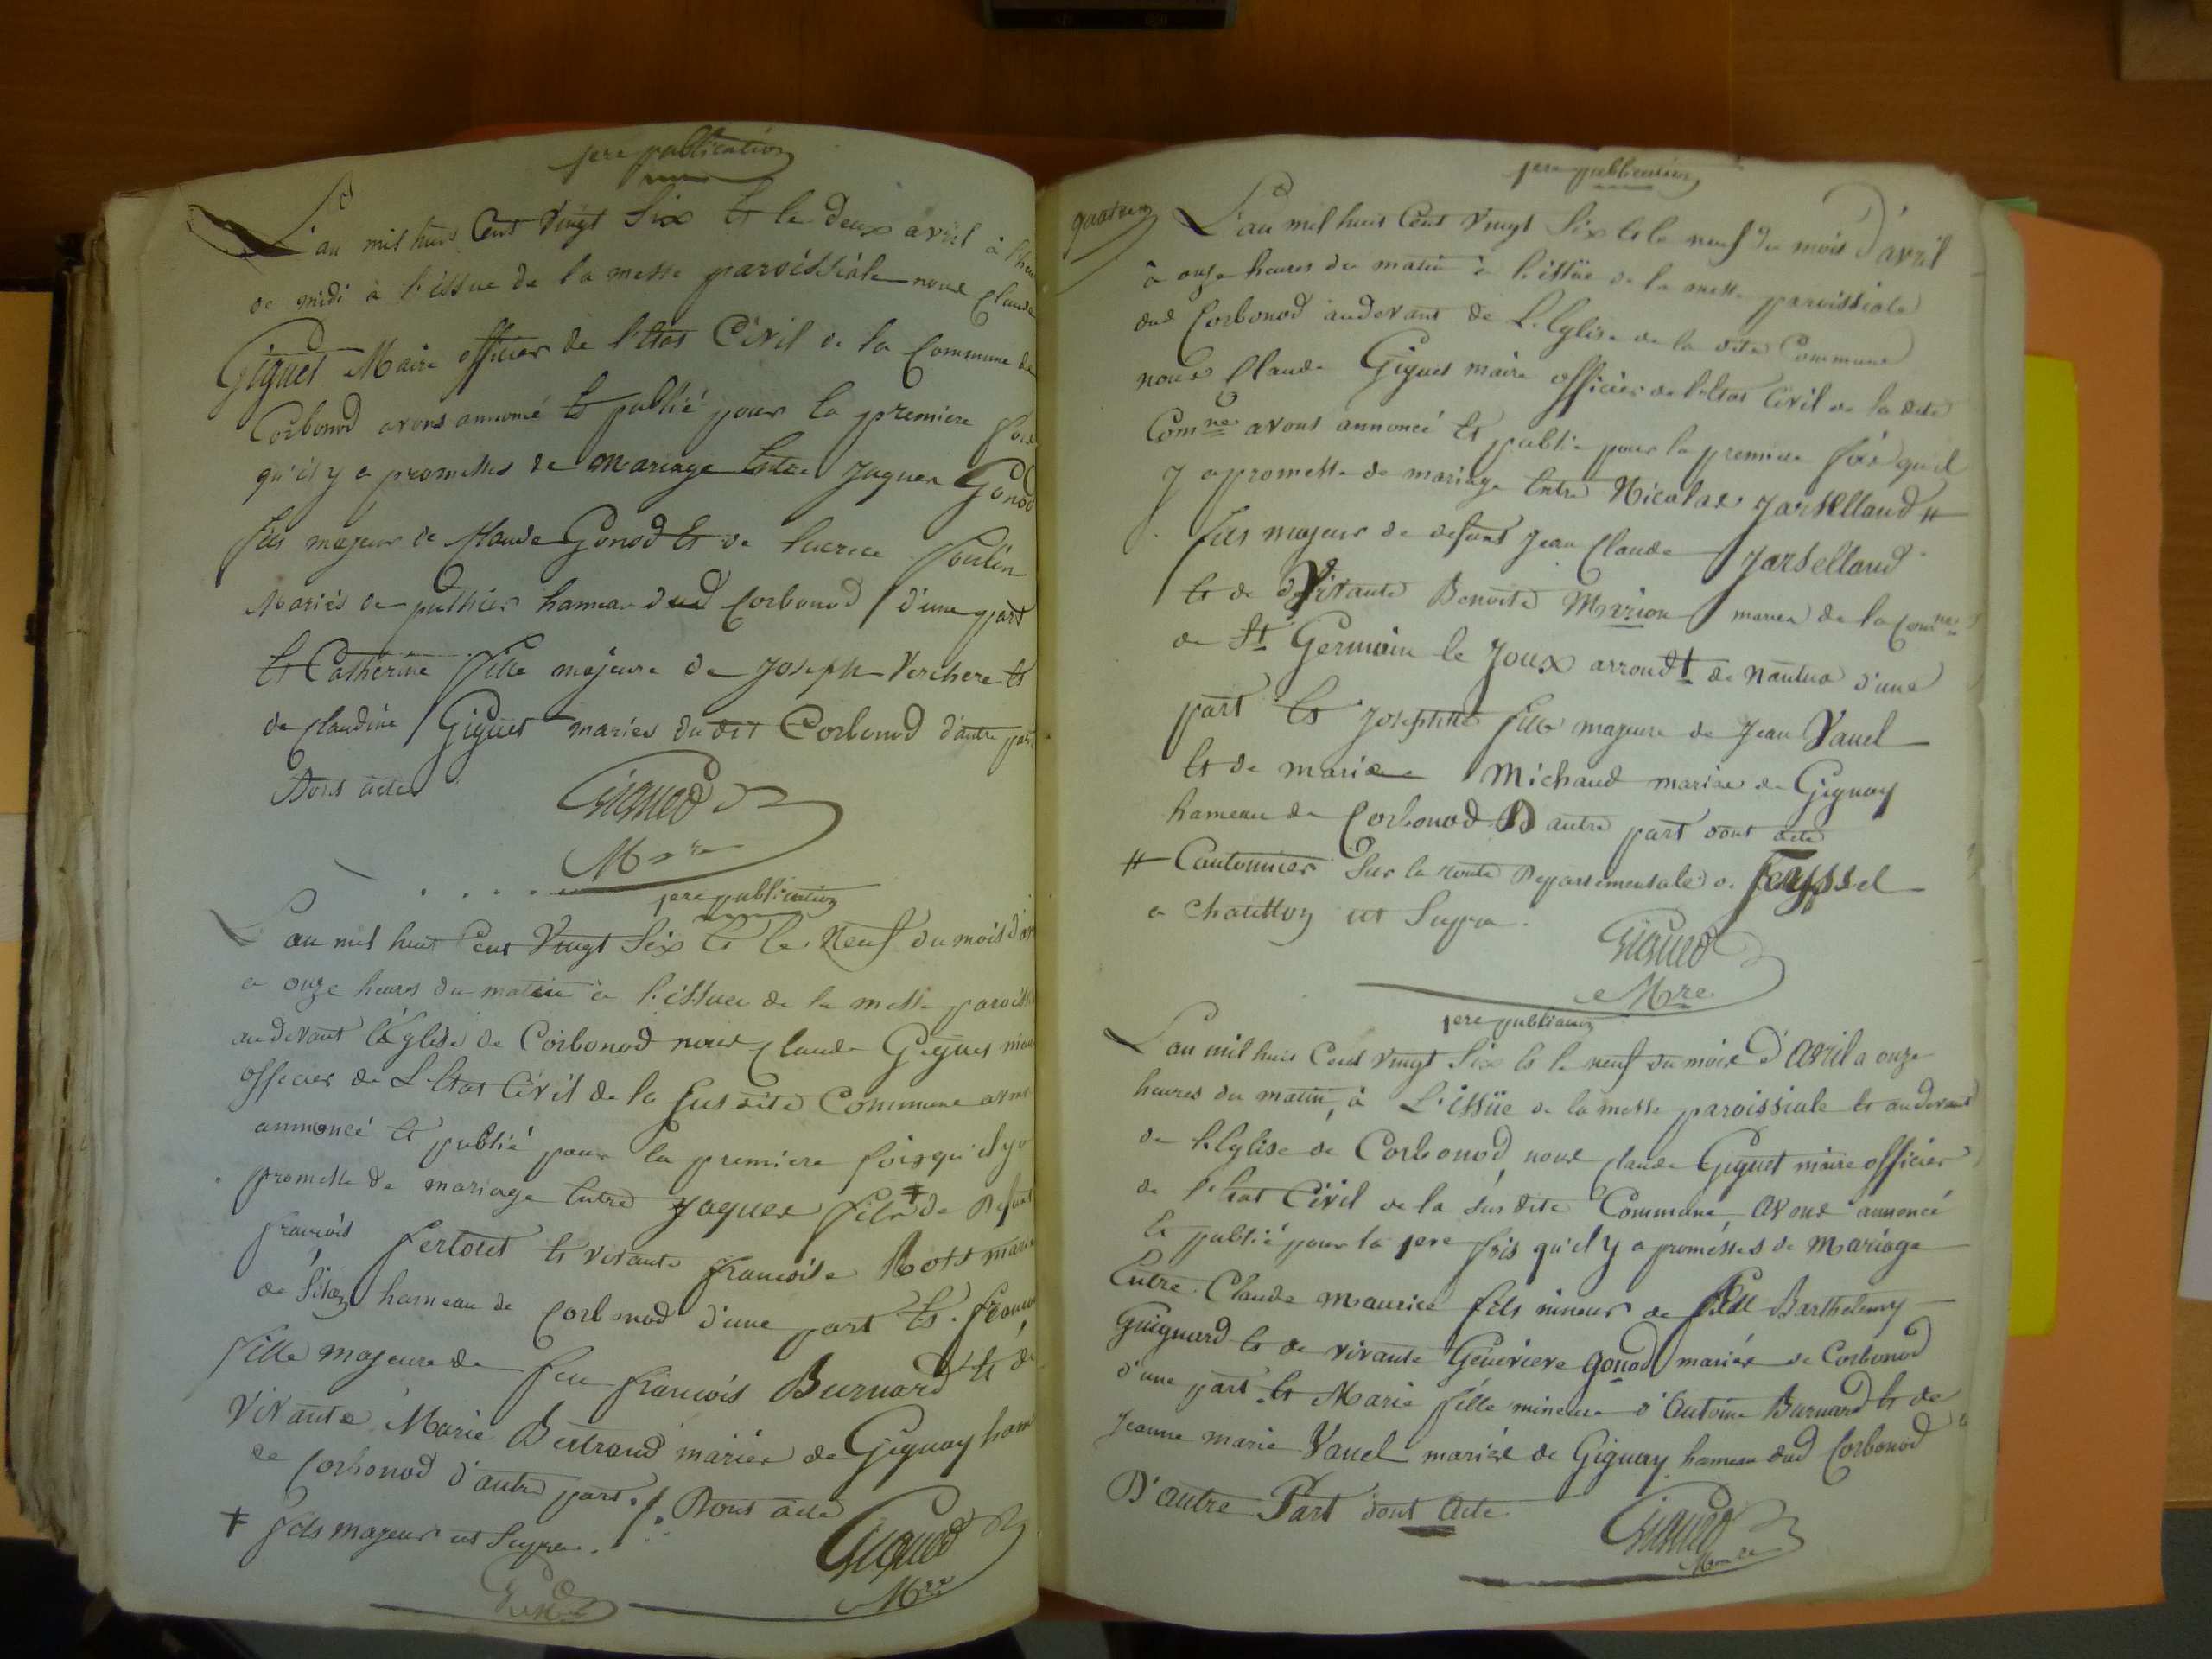 1ere publication
L'an mil huit Cent Vingt Six Et le deux avril à l'heure
de midi à l'issue de la messe paroissiale nous Claude
Giguet Maire officier de l'Etat Civil de la Commune de
Corbonod avons annoncé Et publié pour la premiere fois
qu'il y a promesses de mariage Entre Jaques Gonod
fils majeur de Claude Gonod Et de lucrece
Mariés de puthier hameau dud Corbonod d'une part
Et Catherine fille majeure de Joseph Verchere Et
de Claudine Giguet mariés du dit Corbonod d'autre part
Dont acte
Giguet
Mre
1ere publication
L'an mil huit Cent Vingt Six Et le Neuf du mois d'av
a onze heures du matin a l'issue de la messe paroiss
au devant l'Eglise de Corbonod nous Claude Giguet maire
officier de L'Etat Civil de la Susdite Commune avons
annoncé Et publié pour la premiere fois qu'il y a
promesse de mariage Entre Jaques fils # de Defunt
francois fertoret Et vivante francoise Bots mariés
de Silan hameau de Corbonod d'une part Et
fille majeure de feu francois Burnard Et de
Vivante Marie Bertrand mariés de Gignay hame
de Corbonod d'autre part. Dont acte
# fils majeur ut Supra.
Giguet
Mre
1ere publication
quatre
L'an mil huit Cent Vingt Six Et le neuf du mois d'avril
à onze heures du matin à l'issüe de la messe paroissiale
dud Corbonod audevant de L'Eglise de la dite Commune
nous Claude Giguet maire officier de l'Etat Civil de la dite
Comne avons annoncé Et publié pour la premiere fois qu'il
y a promesse de mariage Entre Nicolas Jarsellaud #
fils majeur de defunt Jean Claude Jarsellaud
Et de Vivante Benoite Marion mariés de la Comne
de St Germain le Joux arrondt de Nantua d'une
part Et Josephte fille majeure de Jean Vauel
Et de marie Michaud mariés de Gignay
hameau de Corbonod D'autre part dont acte
# Cantonnier Sur la route Departementale de Seyssel
a Chatillon ut Supra.
Giguet
Mre
1ere publication
L'an mil huit Cent vingt Six Et le neuf du mois d'avril a onze
heures du matin, à L'issüe de la messe paroissiale Et au devant
de l'Eglise de Corbonod, nous Claude Giguet maire officier
de l'Etat Civil de la sus dite Commune, avons annoncé
Et publié pour la 1ere fois qu'il y a promesses de Mariage
Entre Claude Maurice fils mineur de Barthelemy
Guignard Et de vivante Genevieve gonod mariés de Corbonod
d'une part Et Marie fille mineure d'Antoine Burnard Et de
Jeanne marie Vauel mariés de Gignay hameau dud Corbonod
D'autre Part dont Acte
Giguet
Maire